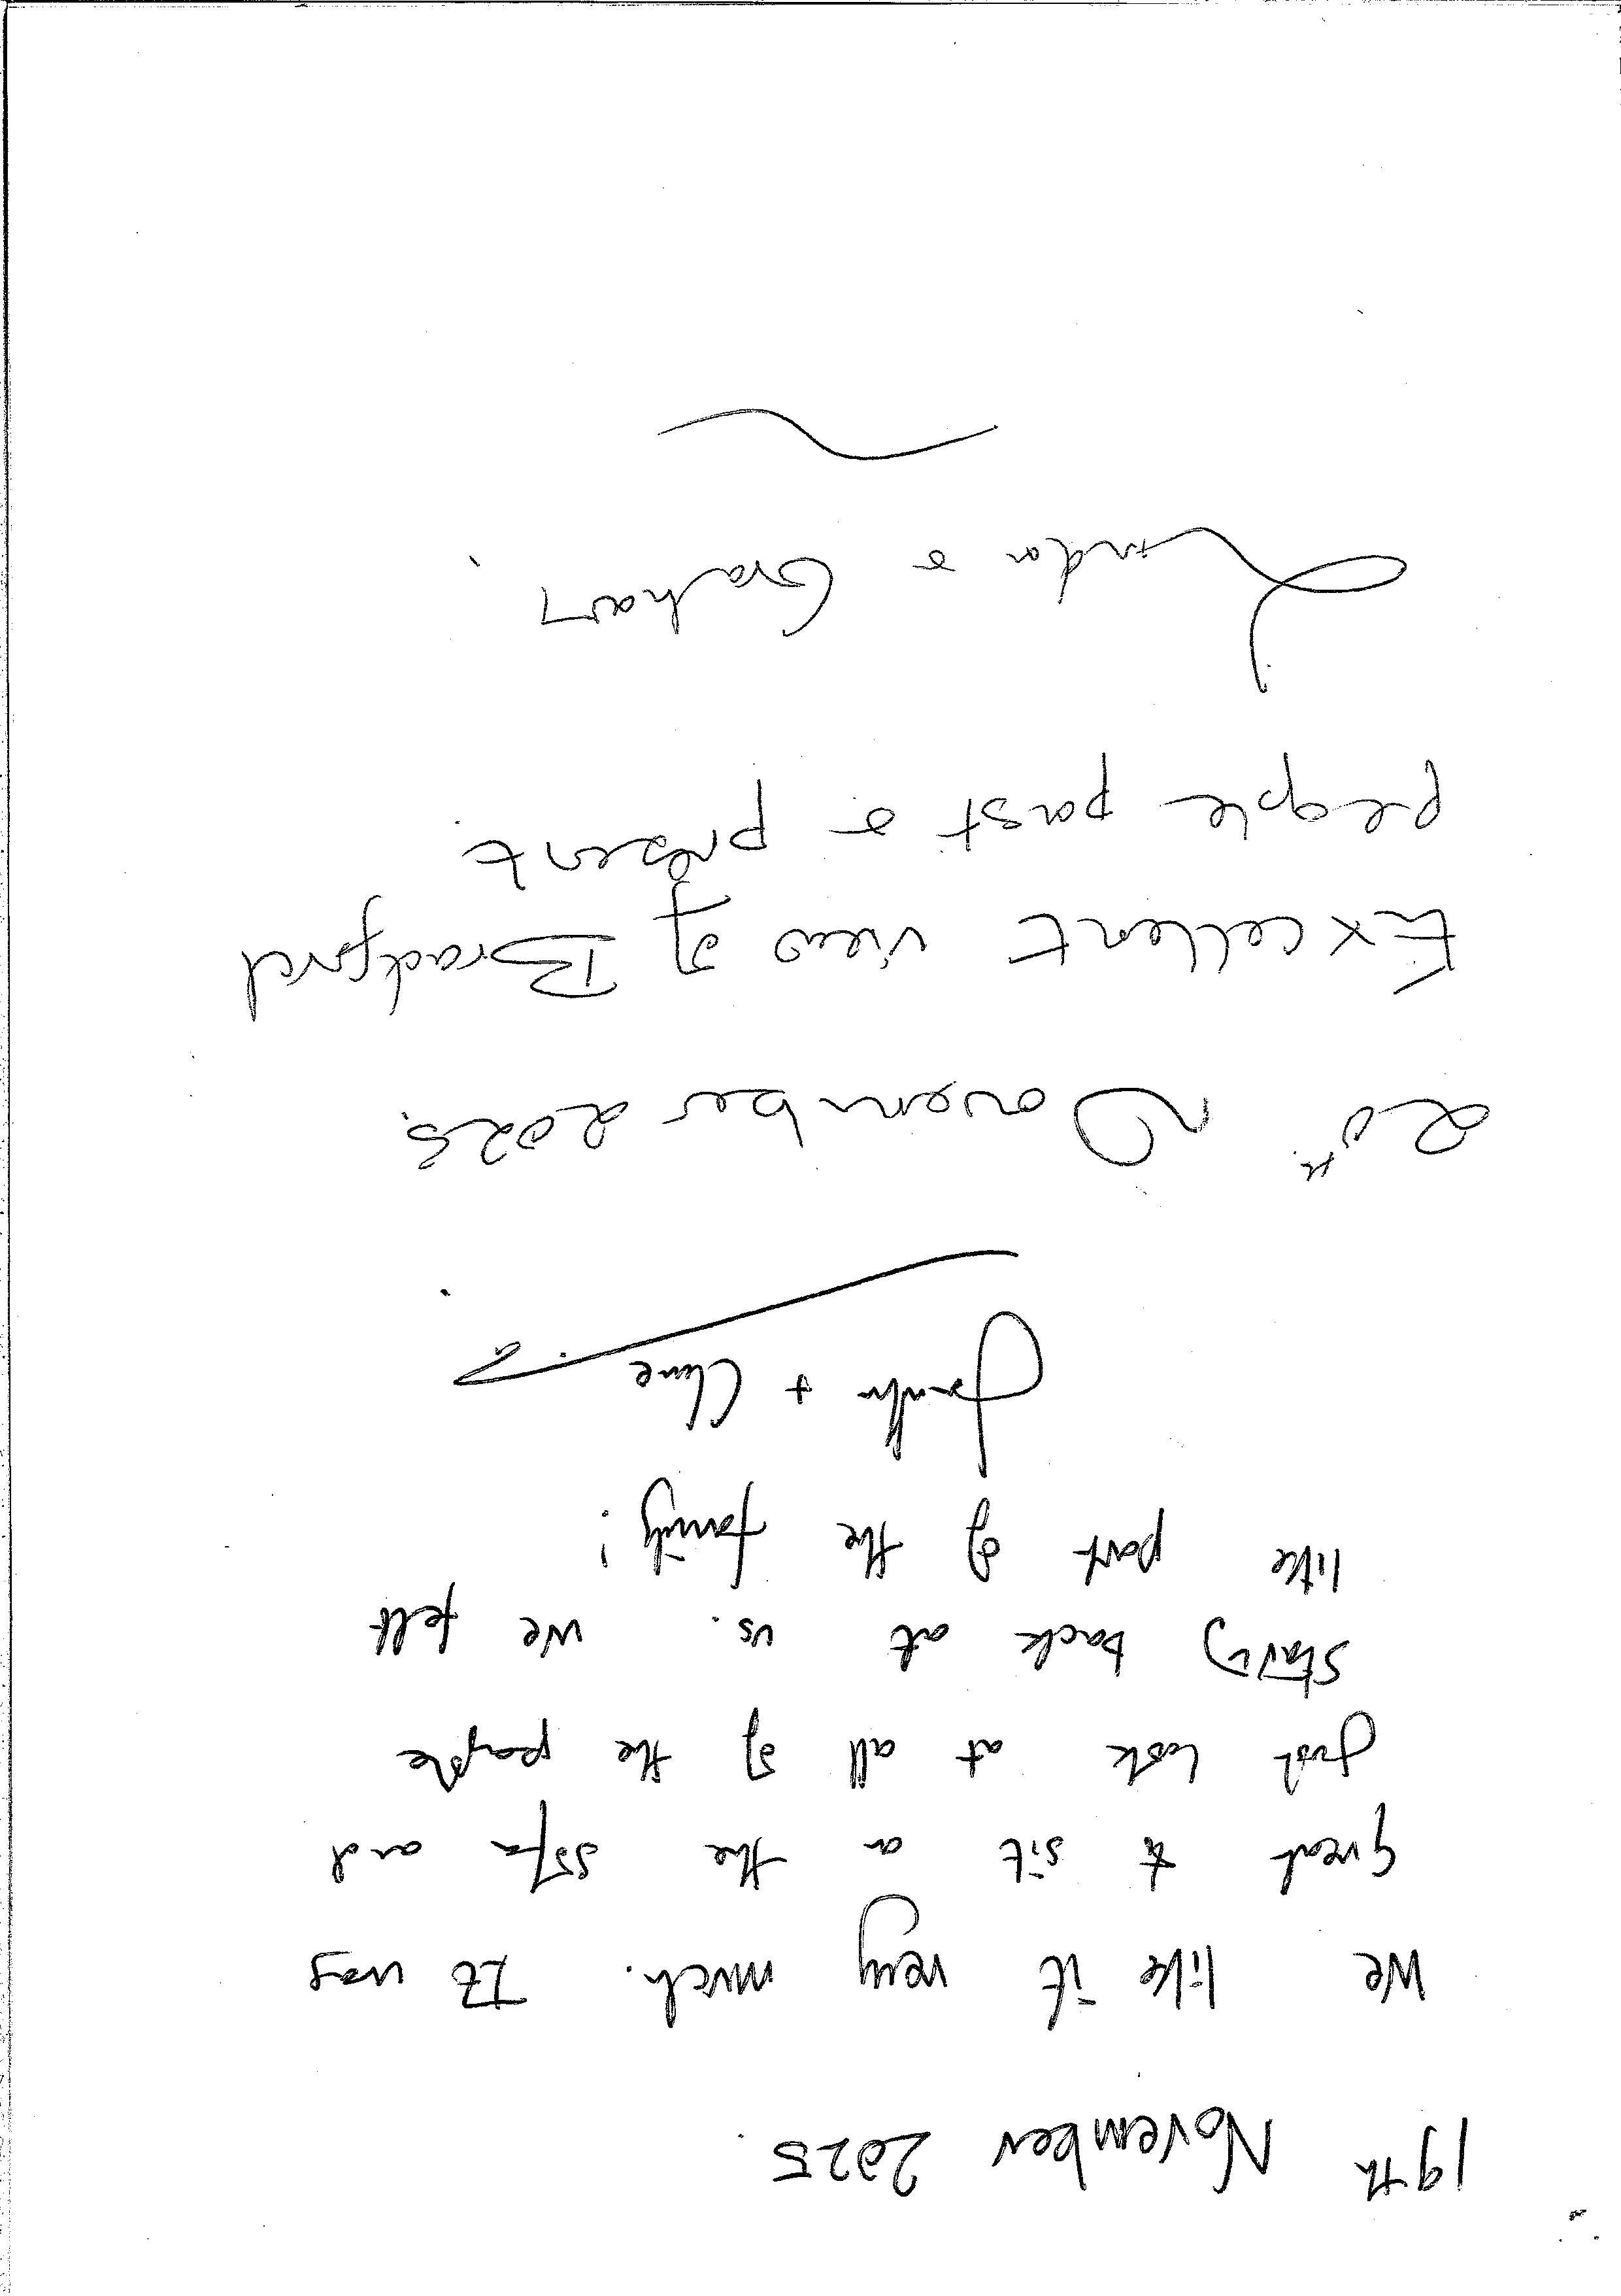 19th November 2025
We like it very much. It was
great to sit on the sofa and
just look at all of the people
staring back at us. We felt
like part of the family!
+ Clive
20th November 2025.
Excellent view of Bradford
people past & present.
Linda & Graham.